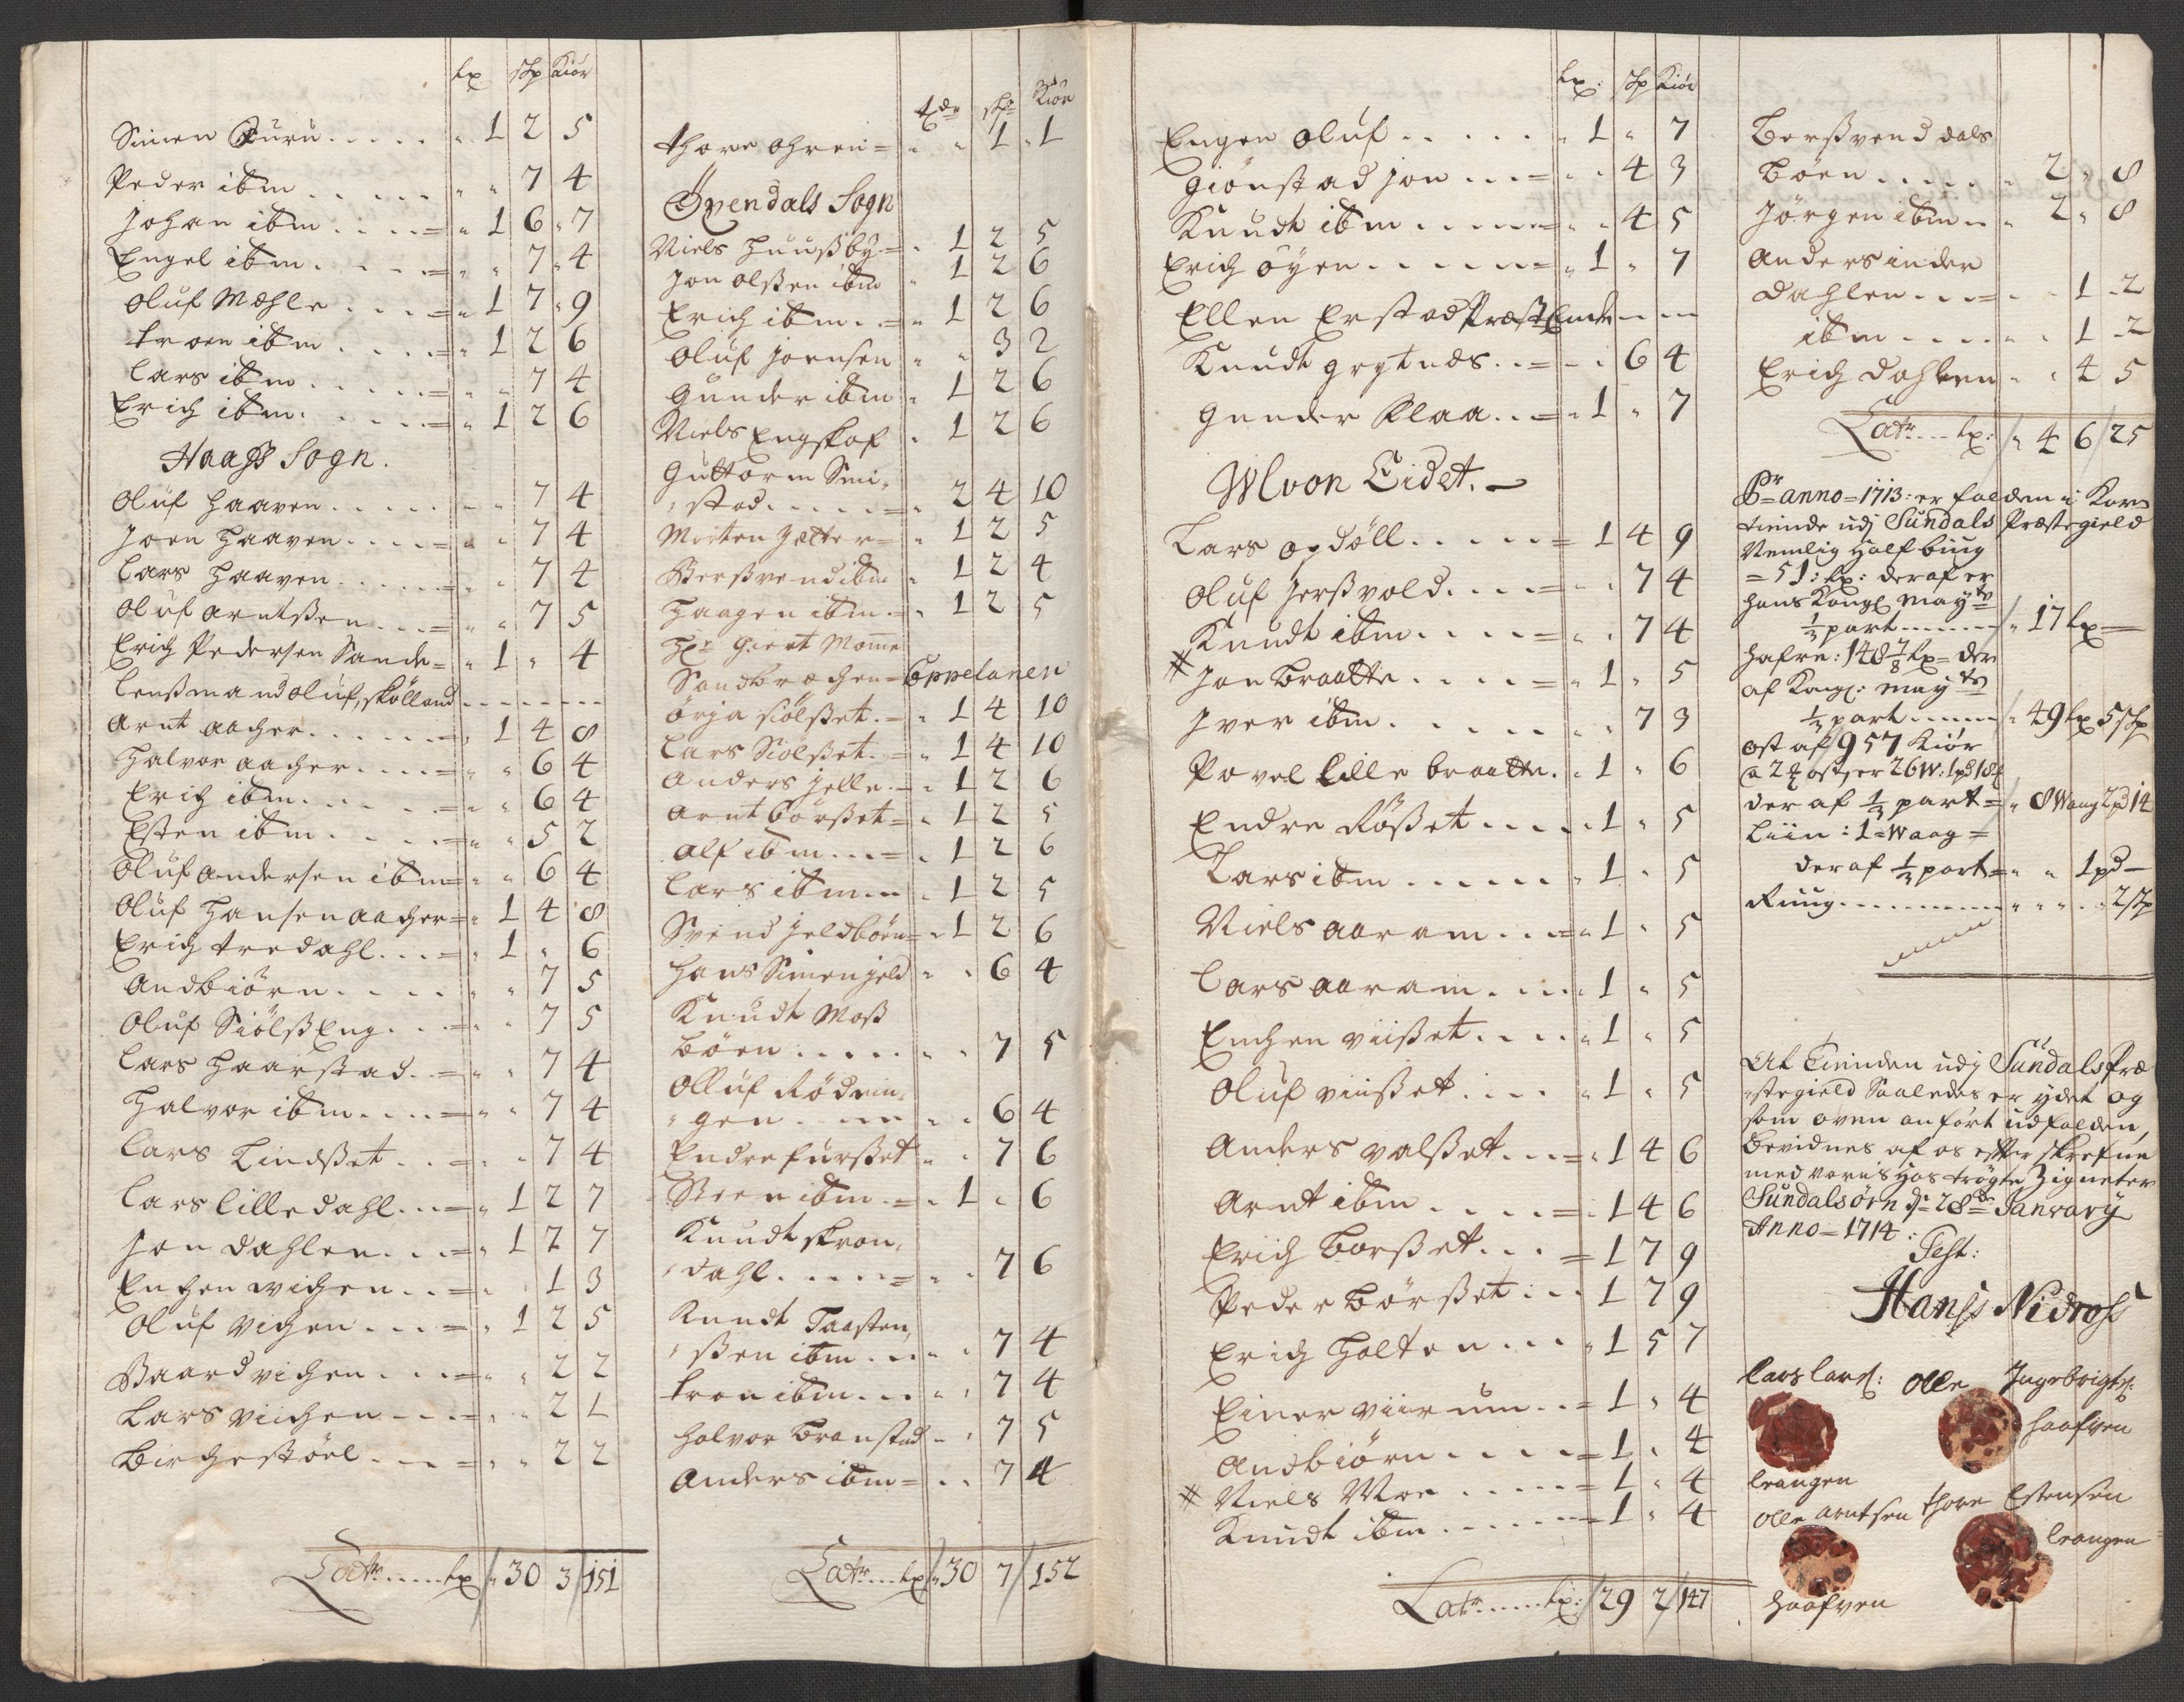 Lx Skp Kiør
Simen Furu ..... " 1 2 5
Peder ibm ..... " " 7 4
Johan ibm .... = " 1 6 " 7
Engel ibm .... = " " 7 " 4
Oluf Mæhle ... = " 1 7 " 9
Troen ibm .... = " 1 2 6
Lars ibm .... = " " 7 4
Erich ibm .... = " 1 2 6
Haafs Sogn.
Oluf Haaven ..... " " 7 4
Joen Haaven .... = " " 7 4
Lars Haaven .... = " " 7 4
Oluf Arntsßen ... = " " 7 5
Erich Pedersen Sande = " 1 " 4
Lenßmand Oluf, Skölland - - - - - -
Arnt Aacher ..... = " 1 4 8
Halvor Aacher .... = " " 6 4
Erich ibm .... = " " 6 4
Esten ibm .... = " " 5 2
Oluf Andersen ibm = " " 6 4
Oluf Hansen Aacher = " 1 4 8
Erich Tredahl ... = " 1 " 6
Andbiörn ..... " " 7 5
Oluf SiölßEng ... = " " 7 5
Lars Haarstad .. = " " 7 4
Halvor ibm ... = " " 7 4
Lars Lindßet .. = " " 7 4
Lars Lilledahl ... = " 1 2 7
Jon Dahlen ... = " 1 2 7
Enchen Wichen .. = " " 1 3
Oluf Vichen ... = " 1 2 5
Baard Vichen ... = " " 2 2
Lars Viichen ... = " " 2 1
Birchestöel ... = " " 2 2
Latr ..... Lx " 30 3 / 151
Tdr Skp Kiör
Thore Ohren = " " 1 " 1
Öxendals Sogn
Niels Huußby = " 1 2 5
Jon Olßen ibm " 1 2 6
Erich ibm .. = " 1 2 6
Oluf Joensen " " 3 2
Gunder ibm " 1 2 6
Niels Engskof " 1 2 6
Guttorm Smi,
, stad ..... = " 2 4 10
Morten Jætter = " 1 2 5
Berßvend ibm " 1 2 4
Haagen ibm = " 1 2 5
Hr Giert Mome
Sandbrechen = Cappelanen
Örja Siölßet .. = " 1 4 10
Lars Siölßet .. = " 1 4 10
Anders Jelle .. = " 1 2 6
Arnt Börßet = " 1 2 5
Alf ibm ... = " 1 2 6
Lars ibm .. " 1 2 5
Svend Jeldböen = " 1 2 6
Hans Simen jeld " " 6 4
Knudt Moß
böen ..... " " 7 5
Olluf Rödnin,
, gen ..... " " 6 4
Endre Furßet " " 7 6
Steen ibm = " 1 " 6
Knudt Skron,
, dahl ..... = " " 7 6
Knudt Taasten,
, ßen ibm ... " " 7 4
Tron ibm ... " " 7 4
Halvor Branstad " " 7 5
Anders ibm = " " 7 4
Latr .... Lx " 30 7 / 152
Lx: Skp Kiör
Engen Oluf ..... " 1 " 7
Giönstad Jon ... = " " 4 3
Knudt ibm ..... = " " 4 5
Erich Öyen ..... = " 1 " 7
Ellen Erstad Præst Encke - -
Knudt Grytnæs .. = " " 6 4
Gunder Klaa .. = " 1 " 7
Moon Eidet. -
Lars Opdöll ..... = 1 4 9
Oluf Jerßvold .... = " " 7 4
Knudt ibm .... = " " 7 4
# Jon Braatte .... = " 1 " 5
Iver ibm ..... " " 7 3
Povel Lille Braatte . " 1 " 6
Endre Rößet ..... " 1 " 5
Lars ibm ...... " 1 " 5
Niels Aaram ... = " 1 " 5
Lars Aaram .... " 1 " 5
Enchen Viißet .... " 1 " 5
Oluf Viißet .... " 1 " 5
Anders Valßet ... = " 1 4 6
Arnt ibm .... = " 1 4 6
Erich Borßet ... = 1 7 9
Peder Börßet ... 1 7 9
Erich Holten ... " 1 5 7
Einer Viirum .. = 1 " 4
Andbiörn ..... = 1 " 4
# Niels Moe ..... = 1 " 4
Knudt ibm ...... = 1 " 4
Latr ..... Lx: / 29 2 / 147
Berßvend dals
Böen ..... " 2 " 8
Jörgen ibm .. " 2 " 8
Anders inder
Dahlen ... = " " 1 " 2
ibm ..... " " 1 " 2
Erich Dahlen " " 4 5
Latr ... Lx: / " 4 6 / 25
Pr Anno = 1713: er falden i Korn
Tiende udj Sundals Præstegield
Nemlig Half biug
= 51: Lx: deraf er
Hans Kongl Maytz
1/3 part ....... / " 17 Lx =
Hafre: 148 7/8 Lx = der
af Kongl: Mayts
1/3 part ...... / " 49 Lx 5 Skp
Ost af 957 Kiör
a 2 ℔ ost er 26 W: 1 pd 18 ℔
der af 1/3 part = / " 8 Waag 2 pd 14
Liin: 1 = Waag =
der af 1/3 part = " " 1 pd -
Ruug ........... " " " . " 2 Skp
At Tiinden udj Sundals Præ
, stegield Saaledes er ydet og
som oven anfört udfalden,
Bevidnes af os efter skrefne
med vores Hos trögte Zigneter
Sundalsörn d: 28de Janvarÿ
Anno = 1714:
Test:
Hanss Nidross
Lars Larß: Olle Ingebrigtß:
Haafven
Leangen
Olle Arntsen Thore Estensen
Leangen
Haafven